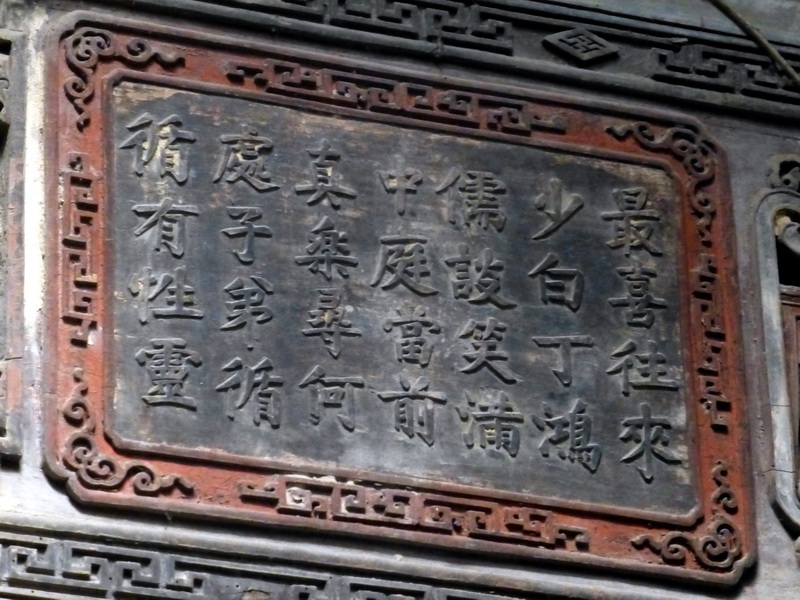 最喜往來
少白丁鴻
儒談笑滿
中庭當前
真樂尋何
處子弟循
循有性靈